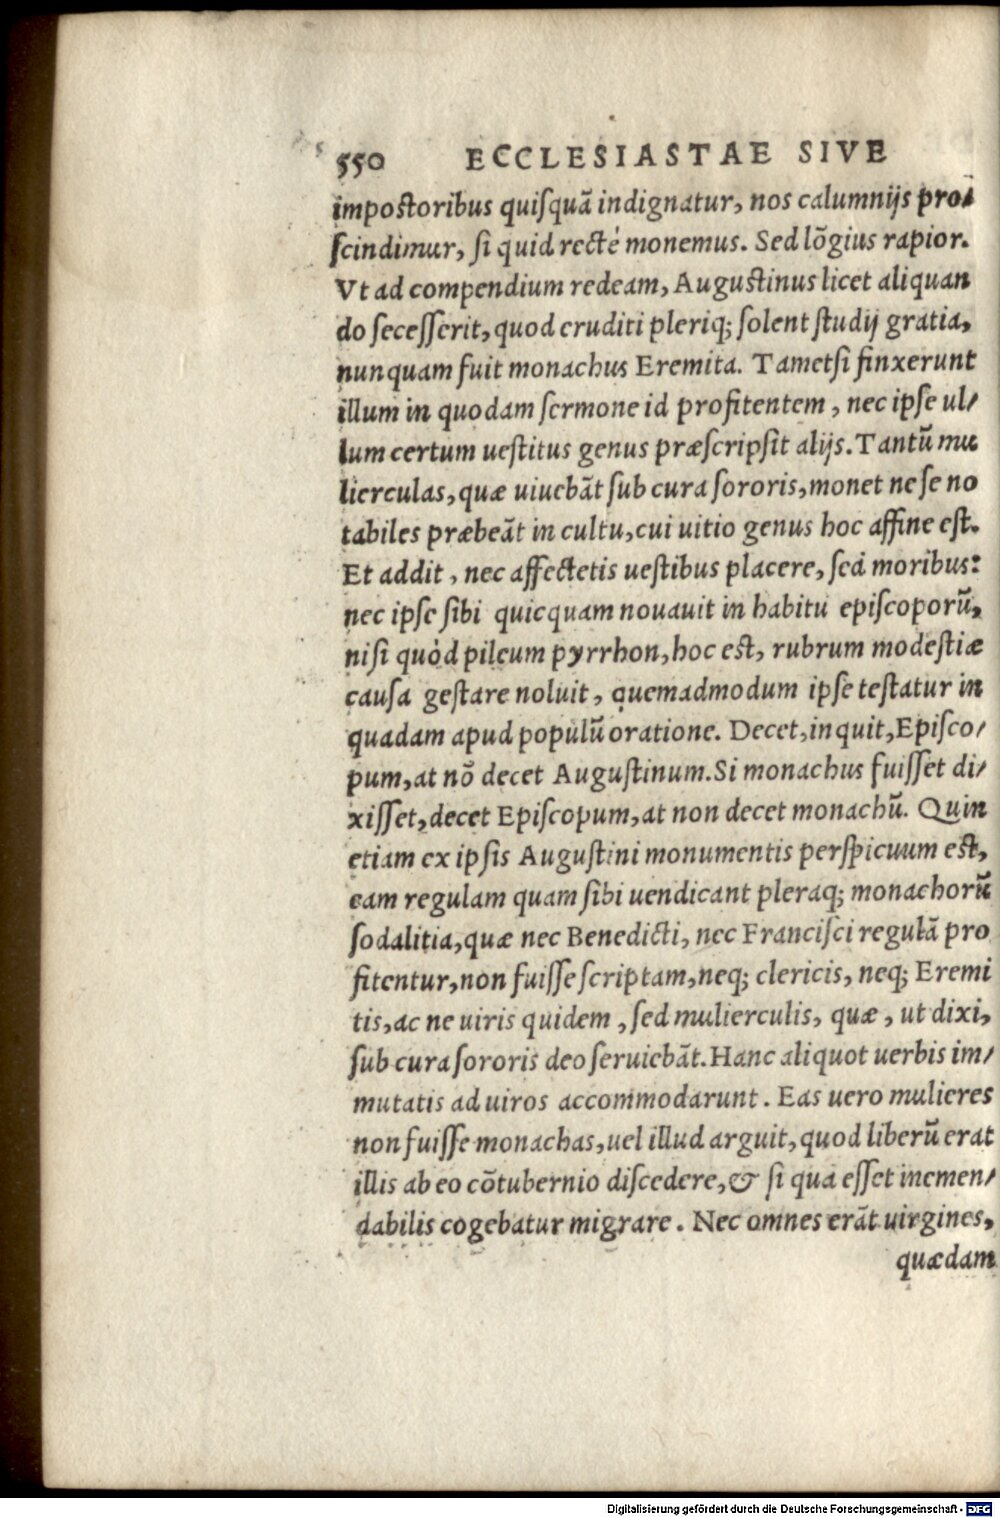 550 ECCLESIASTAE SIVE
impostoribus quiſquã indignatur, nos calumnijs pro/
ſcindimur, ſi quid recté monemus. Sed lõgius rapior.
Vt ad compendium redeam, Augustinus licet aliquan
do ſeceſſerit, quod eruditi pleriq; ſolent ſtudij gratia,
nunquam fuit monachus Eremita. Tametſi finxerunt
illum in quodam ſermone id profitentem, nec ipſe ul/
lum certum ueſtitus genus præſcripſit alijs. Tantũ mu
lierculas, quæ uiuebãt ſub cura ſororis, monet ne ſe no
tabiles præbeãt in cultu, cui uitio genus hoc affine eſt.
Et addit, nec affectetis ueſtibus placere, ſed moribus:
nec ipſe ſibi quicquam nouauit in habitu epiſcoporũ,
niſi quòd pileum pyrrhon, hoc est, rubrum modeſtiæ
cauſa geſtare noluit, quemadmodum ipſe teſtatur in
quadam apud populũ oratione. Decet, inquit, Epiſco/
pum, at nõ decet Auguſtinum. Si monachus fuiſſet di/
xiſſet, decet Epiſcopum, at non decet monachũ. Quin
etiam ex ipſis Auguſtini monumentis perſpicuum est,
eam regulam quam ſibi uendicant pleraq; monachorũ
ſodalitia, quæ nec Benedicti, nec Franciſci regulã pro
fitentur, non fuiſſe ſcriptam, neq; clericis, neq; Eremi
tis, ac ne uiris quidem, ſed mulierculis, quæ, ut dixi,
ſub cura ſororis deo ſeruiebãt. Hanc aliquot uerbis im/
mutatis ad uiros accommodarunt. Eas uero mulieres
non fuiſſe monachas, uel illud arguit, quod liberũ erat
illis ab eo cõtubernio diſcedere, & ſi qua eſſet inemen/
dabilis cogebatur migrare. Nec omnes erãt uirgines,
quædam
Digitalisierung gefördert durch die Deutsche Forschungsgemeinschaft - DFG